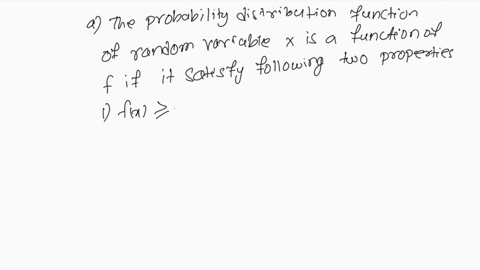 a) The probability distribution function
of random variable x is a function of
f if it satisfy following two properties
1) f(x) ≥